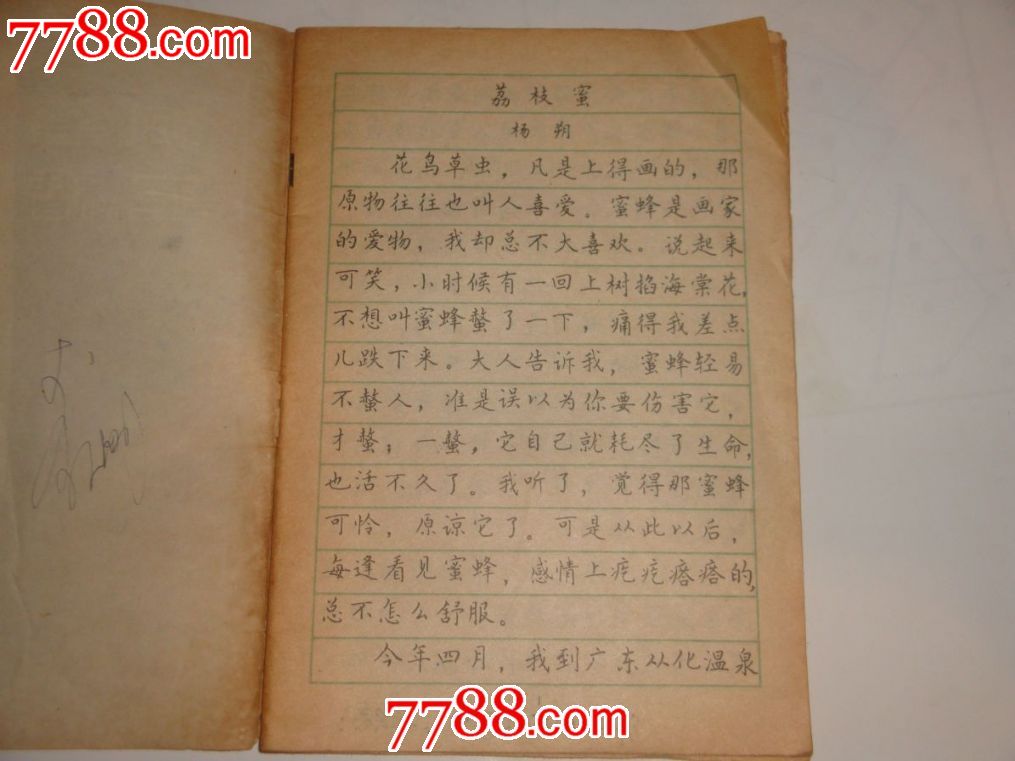 7788.com
7788.com
荔枝蜜
杨朔
花鸟草虫，凡是上得画的，那
原物往往也叫人喜爱。蜜蜂是画家
的爱物，我却总不大喜欢。说起来
可笑，小时候有一回上树掐海棠花，
不想叫蜜蜂螫了一下，痛得我差点
儿跌下来。大人告诉我，蜜蜂轻易
不螫人，准是误以为你要伤害它，
才螫；一螫，它自己就耗尽了生命，
也活不久了。我听了，觉得那蜜蜂
可怜，原谅它了。可是从此以后，
每逢看见蜜蜂，感情上疙疙瘩瘩的，
总不怎么舒服。
今年四月，我到广东从化温泉
7788.com